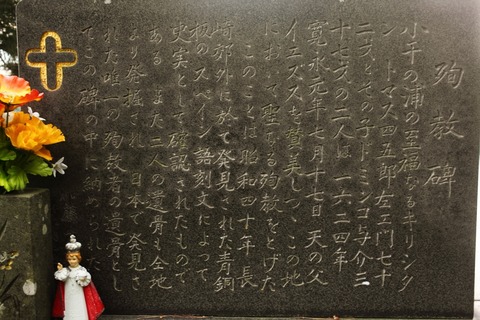 殉教碑
小干の浦の至福なるキリシタ
ン トマス四五郎左エ門七十
二才とその子ドミンコ与介三
十七才の二人は一六二四年
寛永元年七月十七日 天の父
イエズスを賛美しつつこの地
において聖なる殉教をとげた
このことは昭和四十年 長
崎郊外に於て発見された青銅
板のスペイン語刻文によって
史実として確認されたもので
ある また二人の遺骨も仝地
より発掘され 日本で発見さ
れた唯一の殉教者の遺骨とし
てこの碑の中に納められた